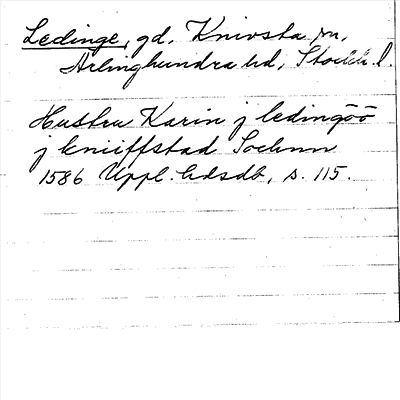 Ledinge, gd, Knivsta sn,
Ärlinghundra hd, Stockh. l.
Hustru Karin j ledingöö
j kniiffstad Sochnn
1586 Uppl. hdsdb, s. 115.